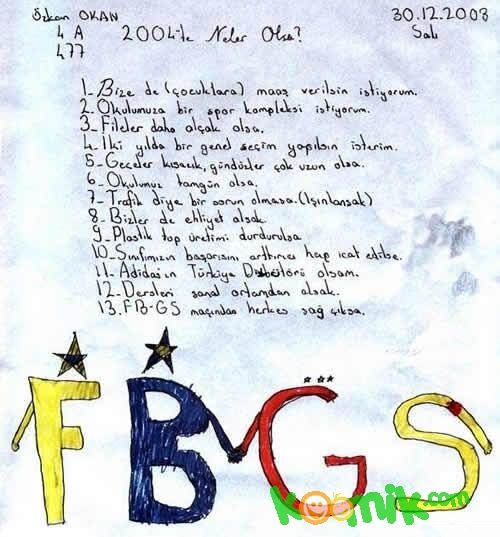 Özkan OKAN
4 A
477
30.12.2003
Salı
2004'te Neler Olsa?
1_ Bize de (çocuklara) maaş verilsin istiyorum.
2_ Okulumuza bir spor kompleksi istiyorum.
3_ Fileler daha alçak olsa.
4_ İki yılda bir genel seçim yapılsın isterim.
5_ Geceler kısacık, gündüzler çok uzun olsa.
6_ Okulumuz tamgün olsa.
7_ Trafik diye bir sorun olmasa. (Işınlansak)
8_ Bizler de ehliyet alsak.
9_ Plastik top üretimi durdurulsa.
10_ Sınıfımızın başarısını arttırıcı hap icat edilse.
11_ Adidas'ın Türkiye Distbütörü olsam.
12_ Dersleri sanal ortamdan alsak.
13. FB-GS maçından herkes sağ çıksa.
FB GS
komik.com